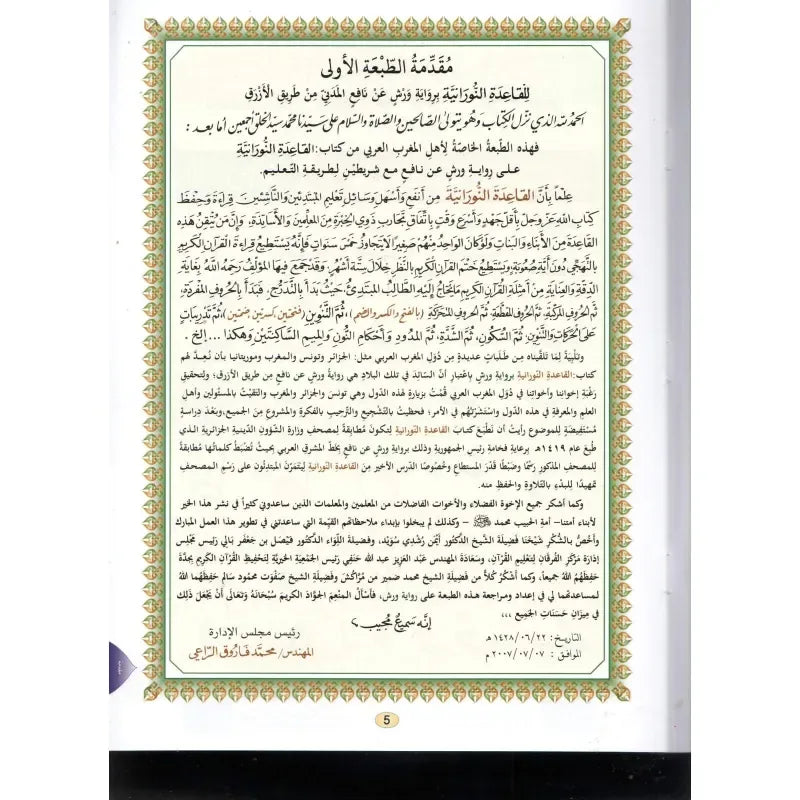 مُقَدِّمَةُ الطَّبْعَةِ الأُولى
لِلْقاعِدَةِ النُّورَانِيَّةِ بِرِوَايَةِ وَرْشٍ عَنْ نَافِعٍ المَدَنِيِّ مِنْ طَرِيقِ الأَزْرَقِ
الحمد لله الذي نزل الكتاب وهو يتولى الصالحين والصلاة والسلام على سيدنا محمد سيد الخلق أجمعين أما بعد :
فهذه الطبعة الخاصة لأهل المغرب العربي من كتاب: القاعدة النُّورَانِيَّة
على رواية ورش عن نافع مع شريطين لِطريقة التعليم.
عِلْماً بِأَنَّ القَاعِدَةَ النُّورَانِيَّةَ مِن أَنفَعِ وَأَسْهَلِ وَسَائِلِ تَعْلِيمِ المُبْتَدِئِينَ وَالنَّاشِئِينَ قِرَاءَةَ وَحِفْظَ
كِتَابِ اللهِ عَزَّ وَجَلَّ بِأَقَلِّ جَهْدٍ وَأَسْرَعِ وَقْتٍ بِاتِّفَاقِ تَجَارِبِ ذَوِي الخِبْرَةِ مِنَ المُعَلِّمِينَ وَالأَسَاتِذَةِ، وَإِنَّ مَنْ يُتْقِنُ هَذِهِ
القَاعِدَةَ مِنَ الأَبْنَاءِ وَالبَنَاتِ وَلَوْ كَانَ الوَاحِدُ مِنْهُمْ صَغِيرًا لَا يَتَجَاوَزُ خَمْسَ سَنَوَاتٍ فَإِنَّهُ يَسْتَطِيعُ قِرَاءَةَ القُرْآنِ الكَرِيمِ
بِالتَّهَجِّي دُونَ أَيَّةِ صُعُوبَةٍ، وَيَسْتَطِيعُ خَتْمَ القُرْآنِ الكَرِيمِ بِالنَّظَرِ خِلَالَ سِتَّةِ أَشْهُرٍ، وَقَدْ جَمَعَ فِيهَا المُؤَلِّفُ رَحِمَهُ اللهُ بِغَايَةِ
الدِّقَّةِ وَالعِنَايَةِ مِنْ أَمْثِلَةِ القُرْآنِ الكَرِيمِ مَا يَحْتَاجُ إِلَيْهِ الطَّالِبُ المُبْتَدِئُ، حَيْثُ بَدَأَ بِالتَّدَرُّجِ، فَبَدَأَ بِالحُرُوفِ المُفْرَدَةِ،
ثُمَّ الحُرُوفِ المُرَكَّبَةِ، ثُمَّ الحُرُوفِ المُقَطَّعَةِ، ثُمَّ الحُرُوفِ المُتَحَرِّكَةِ (بالفتح والكسر والضم)، ثُمَّ التَّنْوِينِ (فتحتين، كسرتين، ضمتين)، ثُمَّ تَدْرِيبَاتٍ
عَلَى الحَرَكَاتِ وَالتَّنْوِينِ، ثُمَّ السُّكُونِ، ثُمَّ الشَّدَّةِ، ثُمَّ المُدُودِ وَأَحْكَامِ النُّونِ وَالمِيمِ السَّاكِنَتَيْنِ وَهَكَذَا ... إلخ.
وتلبيةً لِمَا تَلَقَّيناه مِن طلبات عديدةٍ مِن دُوَلِ المغربِ العربي مثل: الجزائر وتونس والمغرب وموريتانيا بأن نُعِدَّ لهم
كتاب: القاعدة النُّورانيَّة بروايةِ ورشٍ بِاعْتِبارِ أنَّ السائِدَ في تلك البِلاد هي رِوايةُ ورش عن نافِع مِن طَرِيقِ الأزرق؛ ولِتَحقِيقِ
رَغْبَةِ إخواننا وأخواتِنا في دُوَلِ المغربِ العربي قُمْتُ بزيارةٍ لهذه الدول وهي تونس والجزائر والمغرب والتقيْتُ بالمسئولين وأهلِ
العلم والمعرفةِ في هذه الدُّوَل واستَشَرْتُهم في الأمر؛ فحظيتُ بالتشجيع والترحيب بالفكرة والمشروع مِن الجميع، وبعد دراسةٍ
مُسْتَفِيضَةٍ لِلموضوع رأيتُ أن تُطبَعَ كتابُ القاعدة النُّورانيَّة لتكونَ مُطابِقةً لِمصحفِ وزارةِ الشُّؤون الدِّينيَّةِ الجزائريَّة الذي
طُبِعَ عام ١٤١٩هـ برعايةِ فخامةِ رئيسِ الجمهوريةِ وذلك بروايةِ ورش عن نافع بخطِّ المشرقِ العربي بحيثُ تُضبَطُ كلماتُها مطابقةً
لِلمصحفِ المذكورِ رسمًا وضبطًا قدرَ المستطاع وخصوصًا الدَّرسَ الأخيرَ مِن القاعدة النُّورانيَّة لِيَتَمَرَّنَ المبتدئون على رسمِ المصحفِ
تمهيدًا لِلبدءِ بالتلاوةِ والحفظِ منه.
وكما أشكر جميع الإخوة الفضلاء والأخوات الفاضلات من المعلمين والمعلمات الذين ساعدوني كثيراً في نشر هذا الخير
لأبناء أمتنا- أمة الحبيب محمد ﷺ - وكذلك لم يبخلوا بإبداء ملاحظاتهم القيمة التي ساعدتني في تطوير هذا العمل المبارك
وأخُصُّ بالشُّكْرِ شَيْخَنَا فَضِيلَةَ الشيخ الدكتور أيْمَن رُشْدِي سُوَيْد، وفضيلةَ اللواء الدكتور فَيْصَل بن جَعْفَر بَالِي رئيس مجلس
إدارة مَرْكَزِ الفُرقانِ لِتعليم القرآن، وسَعَادةَ المهندس عبد العزيز عبد الله حنفي رئيس الجمعيّة الخيريَّة لِتحفيظ القرآن الكريم بجدَّة
حفظهمُ اللهُ جميعاً، وكما أشكُرُ كُلّاً من فضيلةِ الشيخ محمد ضمير من مَرَّاكُشَ وفضيلةِ الشيخ صفوت محمود سالم حفظهما الله
لمساعدتهما لي في إعداد ومراجعة هذه الطبعة على رواية ورش، فأسألُ المُنْعِمَ الجَوَادَ الكريمَ سُبحانَهُ وتعالى أنْ يجعلَ ذلك
في مِيزانِ حَسَنَاتِ الجميع ،،،
إنَّه سَمِيعٌ مُجِيبٌ
التاريخ: ١٤٢٨/٠٦/٢٢هـ
رئيس مجلس الإدارة
الموافق : ٢٠٠٧/٠٧/٠٧م
المهندس/ محمَّد فَارُوق الرَّاعِي
5